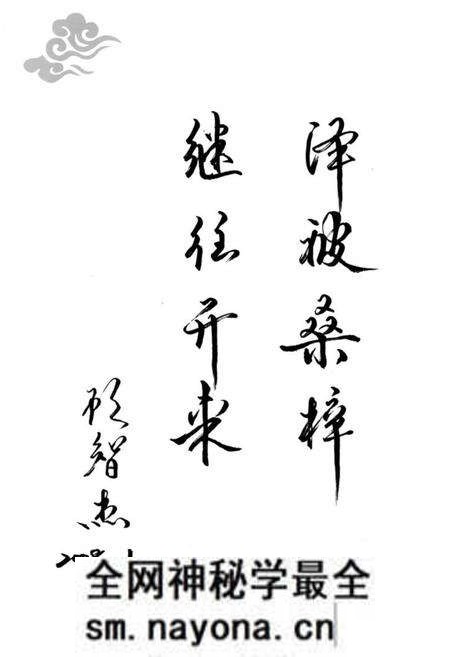 泽被桑梓
继往开来
顾智杰
全网神秘学最全
sm.nayona.cn